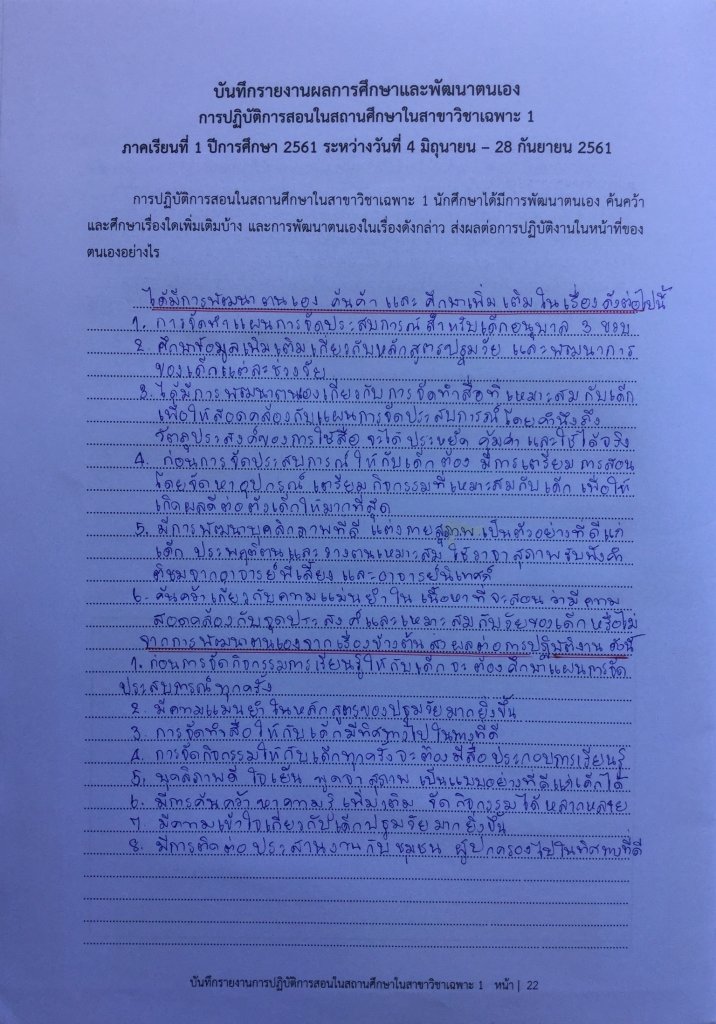 บันทึกรายงานผลการศึกษาและพัฒนาตนเอง
การปฏิบัติการสอนในสถานศึกษาในสาขาวิชาเฉพาะ 1
ภาคเรียนที่ 1 ปีการศึกษา 2561 ระหว่างวันที่ 4 มิถุนายน – 28 กันยายน 2561
การปฏิบัติการสอนในสถานศึกษาในสาขาวิชาเฉพาะ 1 นักศึกษาได้มีการพัฒนาตนเอง ค้นคว้า
และศึกษาเรื่องใดเพิ่มเติมบ้าง และการพัฒนาตนเองในเรื่องดังกล่าว ส่งผลต่อการปฏิบัติงานในหน้าที่ของ
ตนเองอย่างไร
ได้มีการพัฒนาตนเอง ค้นคว้า และ ศึกษาเพิ่มเติม ในเรื่อง ดังต่อไปนี้
1. การจัดทำแผนการจัดประสบการณ์ สำหรับเด็กอนุบาล 3 ขวบ
2. ศึกษาข้อมูลเพิ่มเติมเกี่ยวกับหลักสูตรปฐมวัย และพัฒนาการ
ของเด็กแต่ละช่วงวัย
3. ได้มีการพัฒนาตนเองเกี่ยวกับ การจัดทำสื่อที่เหมาะสมกับเด็ก
เพื่อให้สอดคล้องกับแผนการจัดประสบการณ์ โดยคำนึงถึง
วัตถุประสงค์ของการใช้สื่อ จะได้ ประหยัด คุ้มค่า และใช้ได้จริง
4. ก่อนการจัดประสบการณ์ให้กับเด็กต้อง มีการเตรียมการสอน
โดยจัดหาอุปกรณ์ เตรียมกิจกรรมที่เหมาะสมกับเด็ก เพื่อให้
เกิดผลดีต่อตัวเด็กให้มากที่สุด
5. มีการพัฒนาบุคลิกภาพที่ดี แต่งกายสุภาพ เป็นตัวอย่างที่ดีแก่
เด็ก ประพฤติตนและวางตนเหมาะสม ใช้วาจาสุภาพรับฟังคำ
ติชมจากอาจารย์พี่เลี้ยง และอาจารย์นิเทศก์
6. ค้นคว้าเกี่ยวกับความแม่นยำใน เนื้อหาที่จะสอน ว่ามีความ
สอดคล้องกับจุดประสงค์และเหมาะสมกับวัยของเด็กหรือไม่
จากการพัฒนาตนเองจากเรื่องข้างต้น ส่งผลต่อการปฏิบัติงาน ดังนี้
1. ก่อนการจัดกิจกรรมการเรียนรู้ให้กับเด็กจะต้องศึกษาแผนการจัด
ประสบการณ์ทุกครั้ง
2. มีความแม่นยำในหลักสูตรของปฐมวัยมากยิ่งขึ้น
3. การจัดทำสื่อให้กับเด็กมีทิศทางไปในทางที่ดี
4. การจัดกิจกรรมให้กับเด็กทุกครั้งจะต้องมีสื่อประกอบการเรียนรู้
5. บุคลิภาพดี ใจเย็น พูดจาสุภาพ เป็นแบบอย่างที่ดีแก่เด็กได้
6. มีการค้นคว้าหาความรู้เพิ่มเติม จัดกิจกรรมได้หลากหลาย
7. มีความเข้าใจเกี่ยวกับเด็กปฐมวัยมากยิ่งขึ้น
8. มีการติดต่อประสานงานกับชุมชน ผู้ปกครองไปในทิศทางที่ดี
บันทึกรายงานการปฏิบัติการสอนในสถานศึกษาในสาขาวิชาเฉพาะ 1 หน้า | 22